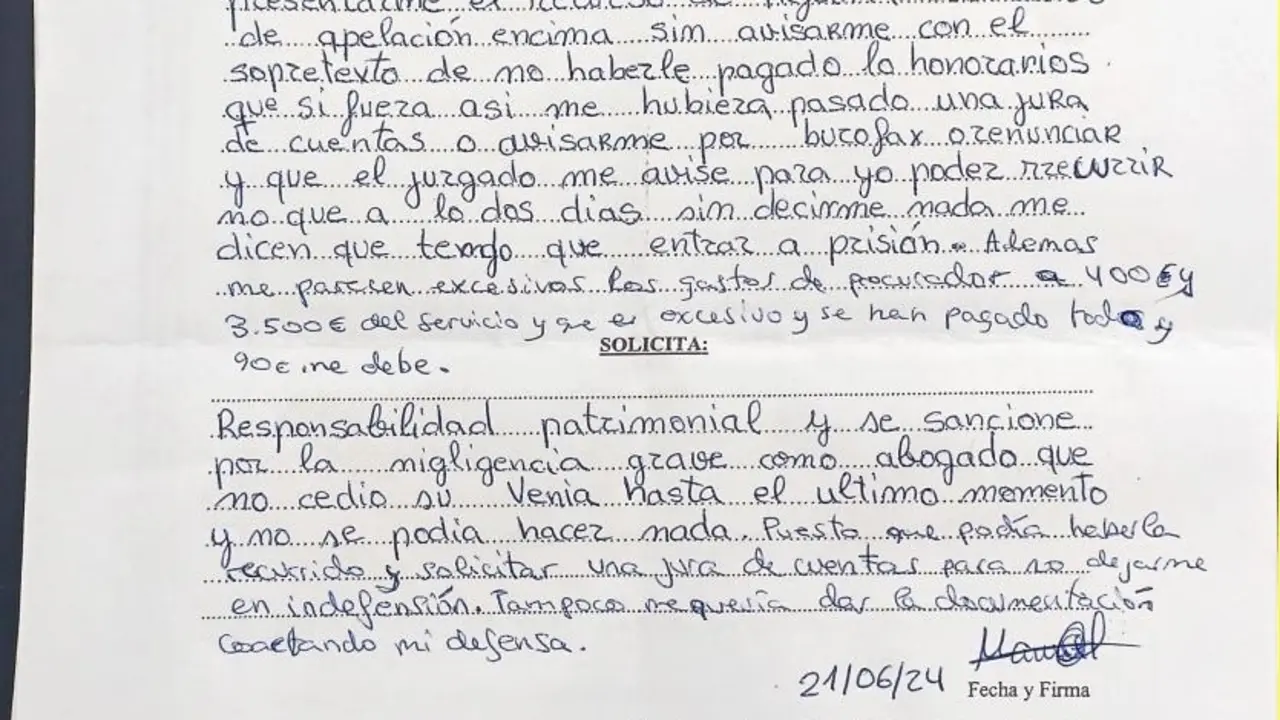 presentarme el recurso de
de apelación encima sim avisarme con el
sopretexto de no haberle pagado lo honorarios.
que si fueza asi me hubieza pasado una jura
de cuentas o avisarme por bucofax o renunciar
y que el juzgado me avise para yo podez rrecurrir
no que a lo dos dias sin decirme nada me
dicen que tengo que entrar a prisión. Ademas
me paresen excesivos los gastos de procurador a 400€ y
3.500€ del servicio y que es excesivo y se han pagado todo y
SOLICITA:
90€ me debe.
Responsabilidad patrimonial y se sancione
por la migligencia grave como abogado que
no cedio su Venia hasta el ultimo momento
y no se podia hacer nada. Puesto que podía haberla
recurrido y solicitar una jura de cuentas para no dejarme
en indefensión. Tampoco me quería dar la documentación
Coactando mi defensa.
21/06/24
Fecha y Firma